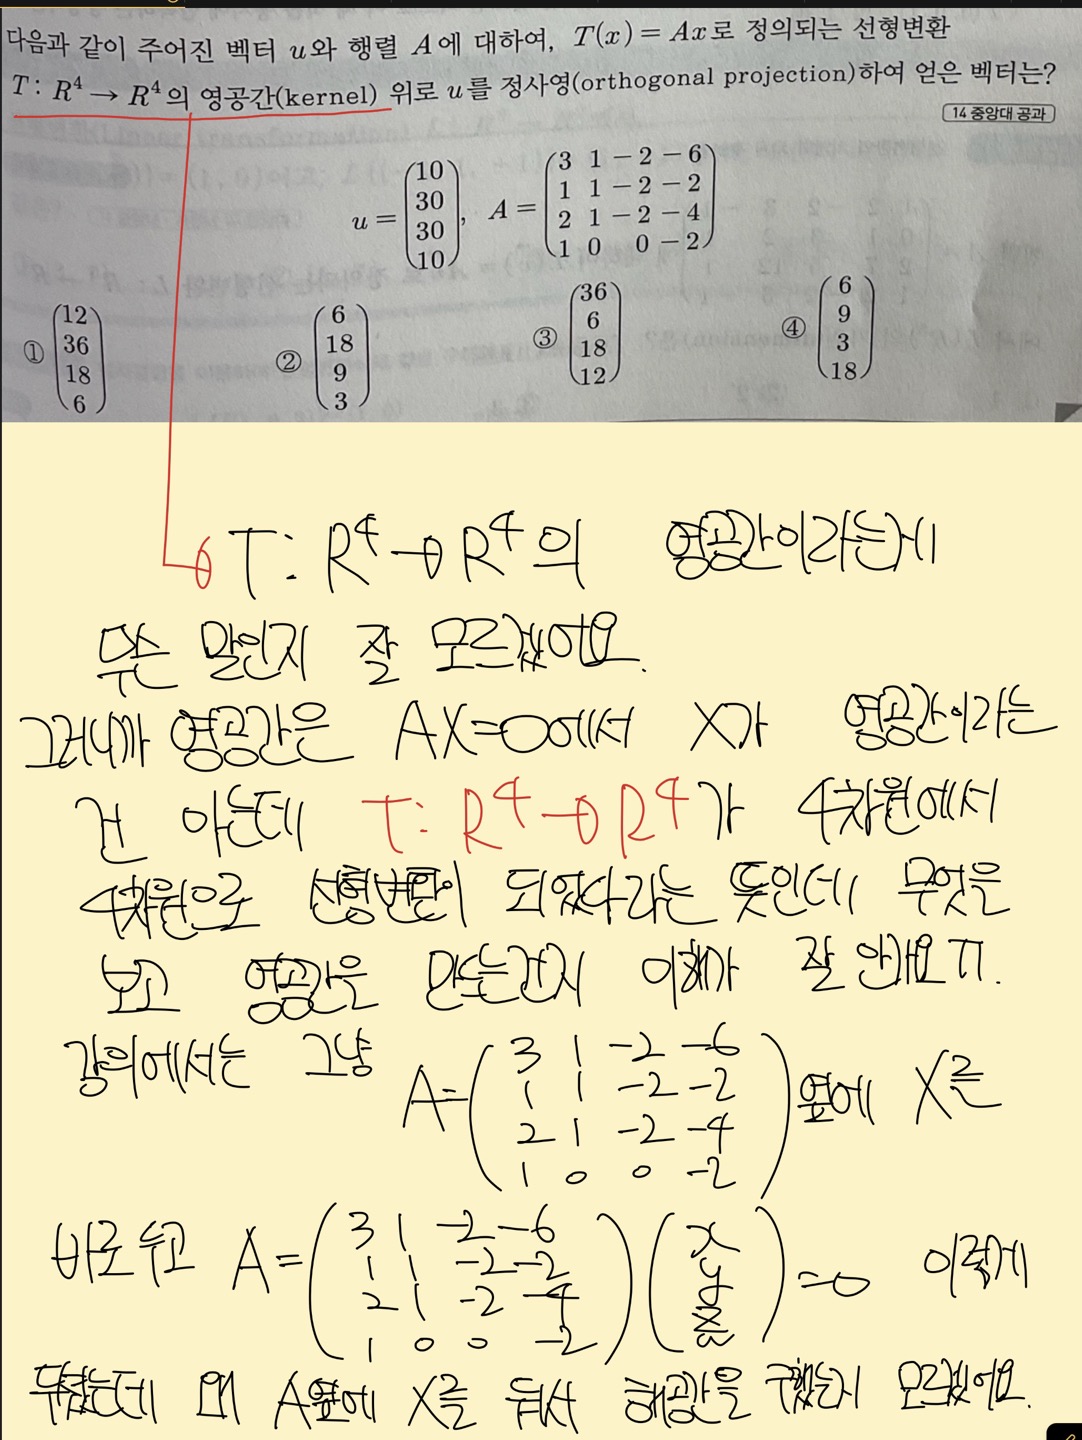 다음과 같이 주어진 벡터 u와 행렬 A에 대하여, T(x) = Ax로 정의되는 선형변환
T : R⁴ → R⁴의 영공간(kernel) 위로 u를 정사영(orthogonal projection)하여 얻은 벡터는?
14 중앙대 공과
u = (10 30 30 10), A = (3 1 −2 −6
1 1 −2 −2
2 1 −2 −4
1 0 0 −2)
① (12 36 18 6) ② (6 18 9 3) ③ (36 6 18 12) ④ (6 9 3 18)
T: R⁴→R⁴의 영공간이라는게
무슨 말인지 잘 모르겠어요.
그러니까 영공간은 AX=0에서 X가 영공간이라는
건 아는데 T: R⁴→R⁴가 4차원에서
4차원으로 선형변환이 되었다라는 뜻인데 무엇을
보고 영공간은 만드는건지 이해가 잘 안가요ㅠ.
강의에서는 그냥 A=(3 1 -2 -6
1 1 -2 -2
2 1 -2 -4
1 0 0 -2) 옆에 X를
바로 두고 A=(3 1 -2 -6
1 1 -2 -2
2 1 -2 -4
1 0 0 -2)(x y z w)=0 이렇게
두셨는데 왜 A옆에 X를 둬서 해공간을 구했는지 모르겠어요.